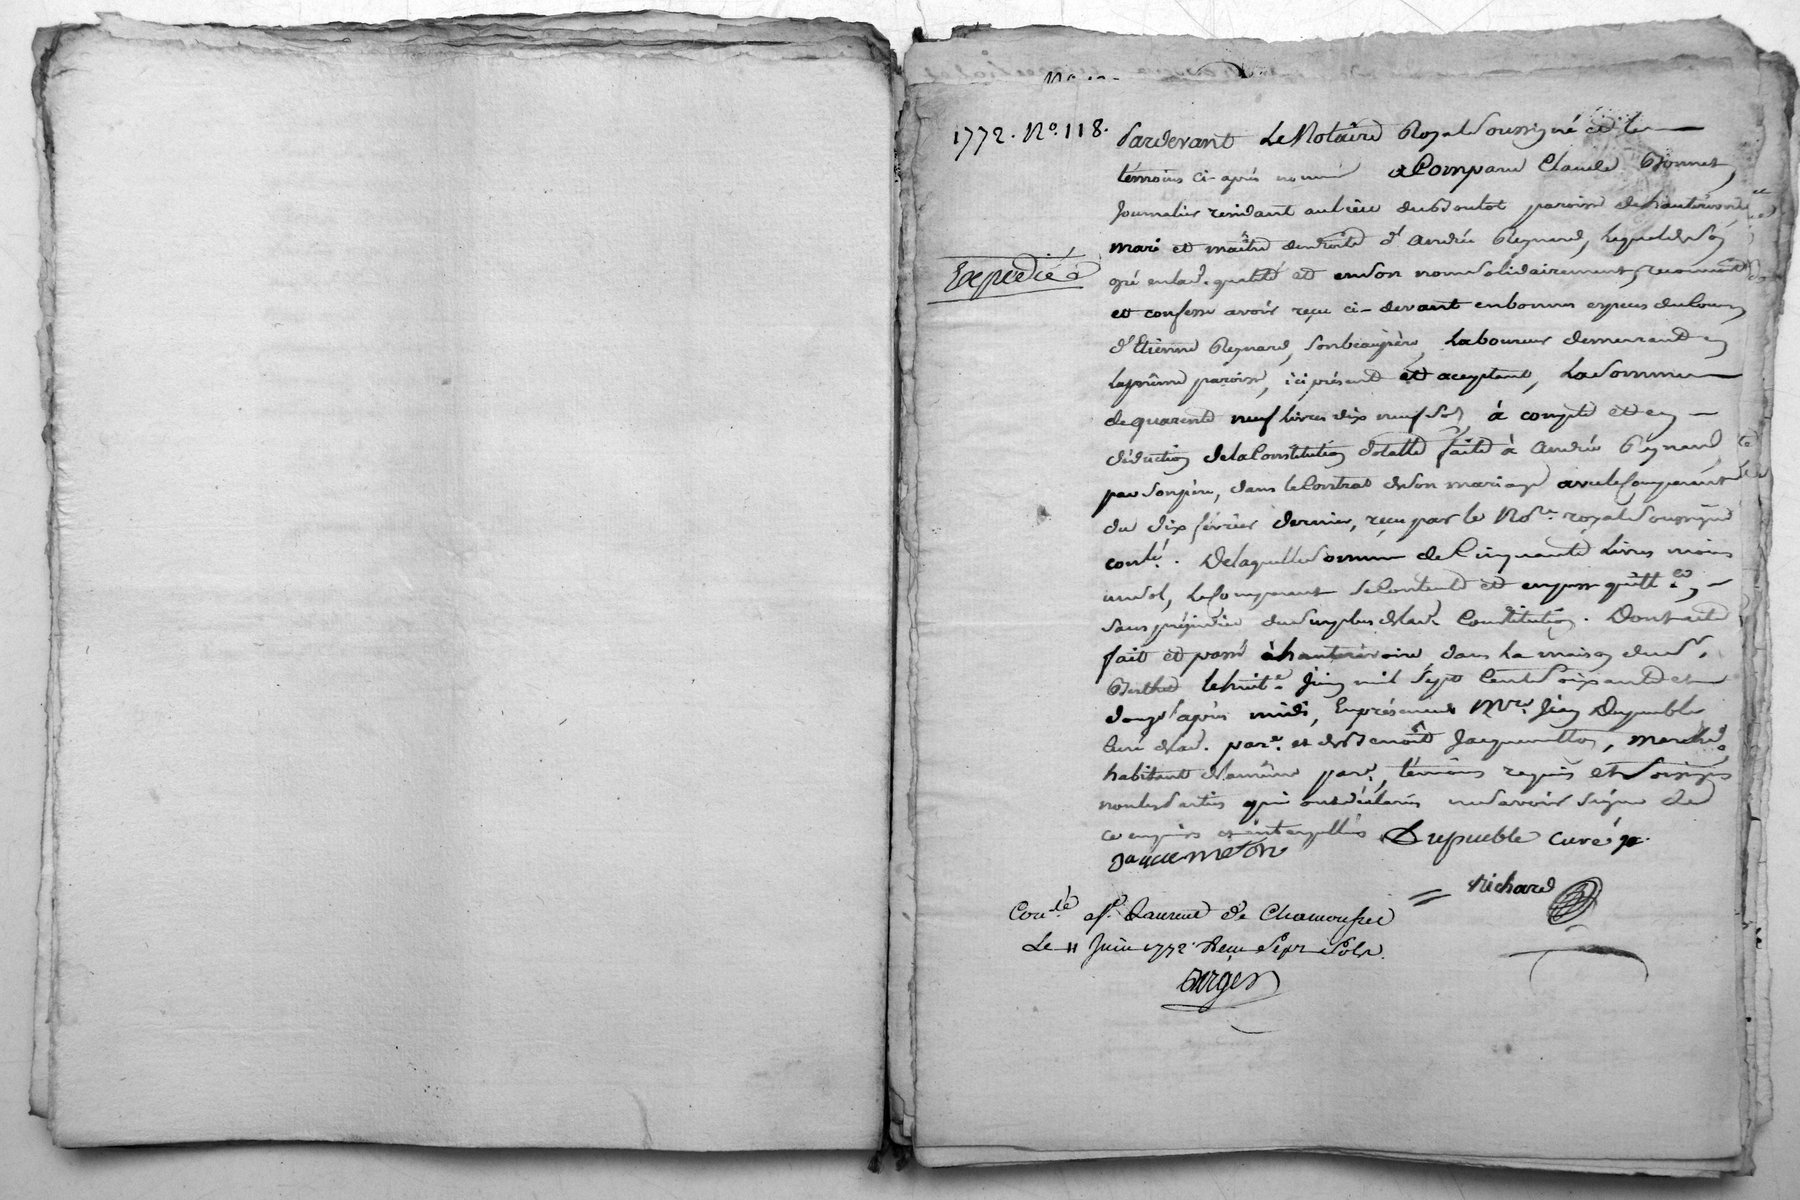 1772. No. 118.
Pardevant Le Notaire Royal Soussigné et les
témoins ci-après nommés a Comparu Claude Bonnet,
Journalier résidant au lieu du Boulot paroisse de hauterivoire
mari et maître des droits d'Andrée Reynard, lequel de son
Expedié
gré en lad. qualité et en son nom solidairement, reconnait
et confesse avoir reçu ci-devant en bonnes especes du Cours
d'Etienne Reynard, son beaupère, Laboureur demeurant en
la même paroisse, ici présent et aceptant, La Somme
de quarente neuf livres dix neuf Sols, à compte et en
déduction de la Constitution dotalle faite à Andrée Reynard
par son père, dans le Contrat de son mariage avec le Comparant
du dix février dernier, reçu par le Nore. royal Soussigné
conlé. De laquelle Somme de Cinquante Livres moins
un Sol, le Comparant se Contente et en passe quitt.ce,
sans préjudice du Surplus de lad. Constitution. Dont acte
fait et passé à hauterivoire dans la maison du Sr.
Berthet le huit.e Juin mil Sept Cent Soixante et
douze après midi, En présence de Mre. Jean Dupuble
Curé de lad. parse. et de Benoît Jacquemetton, marchd.
habitant de la même parse., témoins requis et Soussignés
non les Parties qui ont déclaré ne Savoir Signer de
ce enquis et interpellés Dupuble curé
Jaquemeton
Richard
Con.lé à St. Laurent De Chamousset
Le 11 Juin 1772 Reçu Sept Sols.